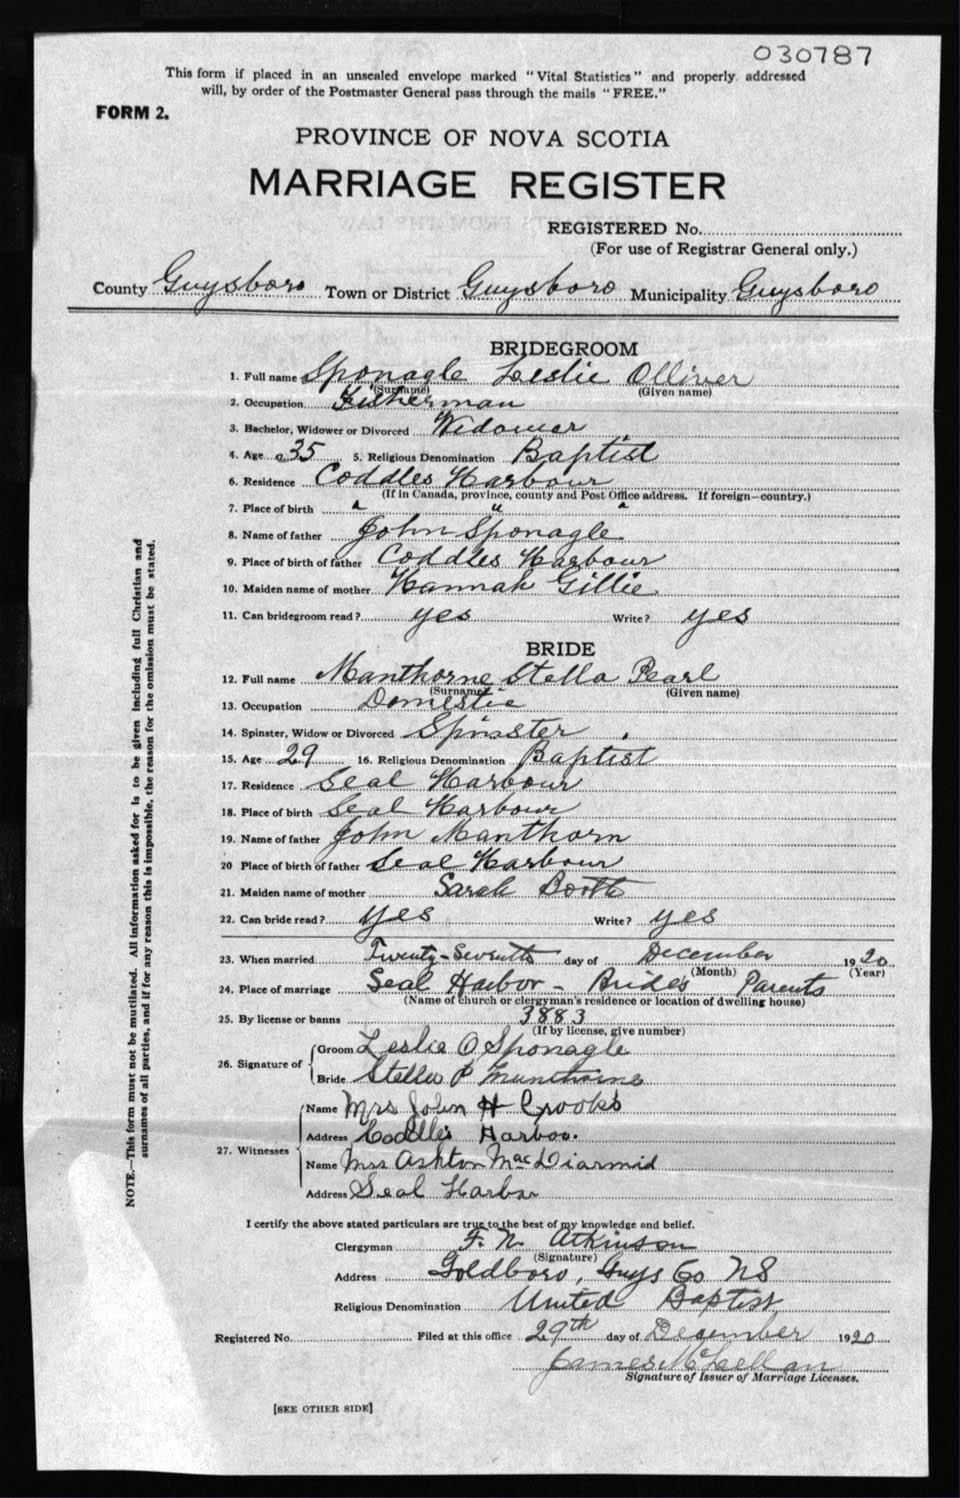 030787
This form if placed in an unsealed envelope marked "Vital Statistics" and properly addressed
will, by order of the Postmaster General pass through the mails "FREE."
FORM 2.
PROVINCE OF NOVA SCOTIA
MARRIAGE REGISTER
REGISTERED No.
(For use of Registrar General only.)
County Guysboro Town or District Guysboro Municipality Guysboro
BRIDEGROOM
1. Full name Sponagle Leslie Olliver
(Surname) (Given name)
2. Occupation Fisherman
3. Bachelor, Widower or Divorced Widower
4. Age 35 5. Religious Denomination Baptist
6. Residence Coddles Harbour
(If in Canada, province, county and Post Office address. If foreign—country.)
7. Place of birth " " "
8. Name of father John Sponagle
9. Place of birth of father Coddles Harbour
10. Maiden name of mother Hannah Gillie
11. Can bridegroom read? yes Write? yes
BRIDE
12. Full name Manthorne Stella Pearl
(Surname) (Given name)
13. Occupation Domestic
14. Spinster, Widow or Divorced Spinster
15. Age 29 16. Religious Denomination Baptist
17. Residence Seal Harbour
18. Place of birth Seal Harbour
19. Name of father John Manthorn
20 Place of birth of father Seal Harbour
21. Maiden name of mother Sarah Booth
22. Can bride read? yes Write? yes
23. When married Twenty-Seventh day of December 1920
(Month) (Year)
24. Place of marriage Seal Harbor - Bride's Parents
(Name of church or clergyman's residence or location of dwelling house)
25. By license or banns 3883
(If by license, give number)
26. Signature of Groom Leslie O Sponagle
Bride Stella P Munthorne
27. Witnesses Name Mrs John H Crooks
Address Coddles Harbor
Name Mrs Ashton MacDiarmid
Address Seal Harbor
I certify the above stated particulars are true to the best of my knowledge and belief.
Clergyman F. N. Atkinson
(Signature)
Address Goldboro, Guys Co NS
Religious Denomination United Baptist
Registered No. Filed at this office 29th day of December 1920
James McLellan
Signature of Issuer of Marriage Licenses.
[SEE OTHER SIDE]
NOTE.—This form must not be mutilated. All information asked for is to be given including full Christian and
surnames of all parties, and if for any reason this is impossible, the reason for the omission must be stated.